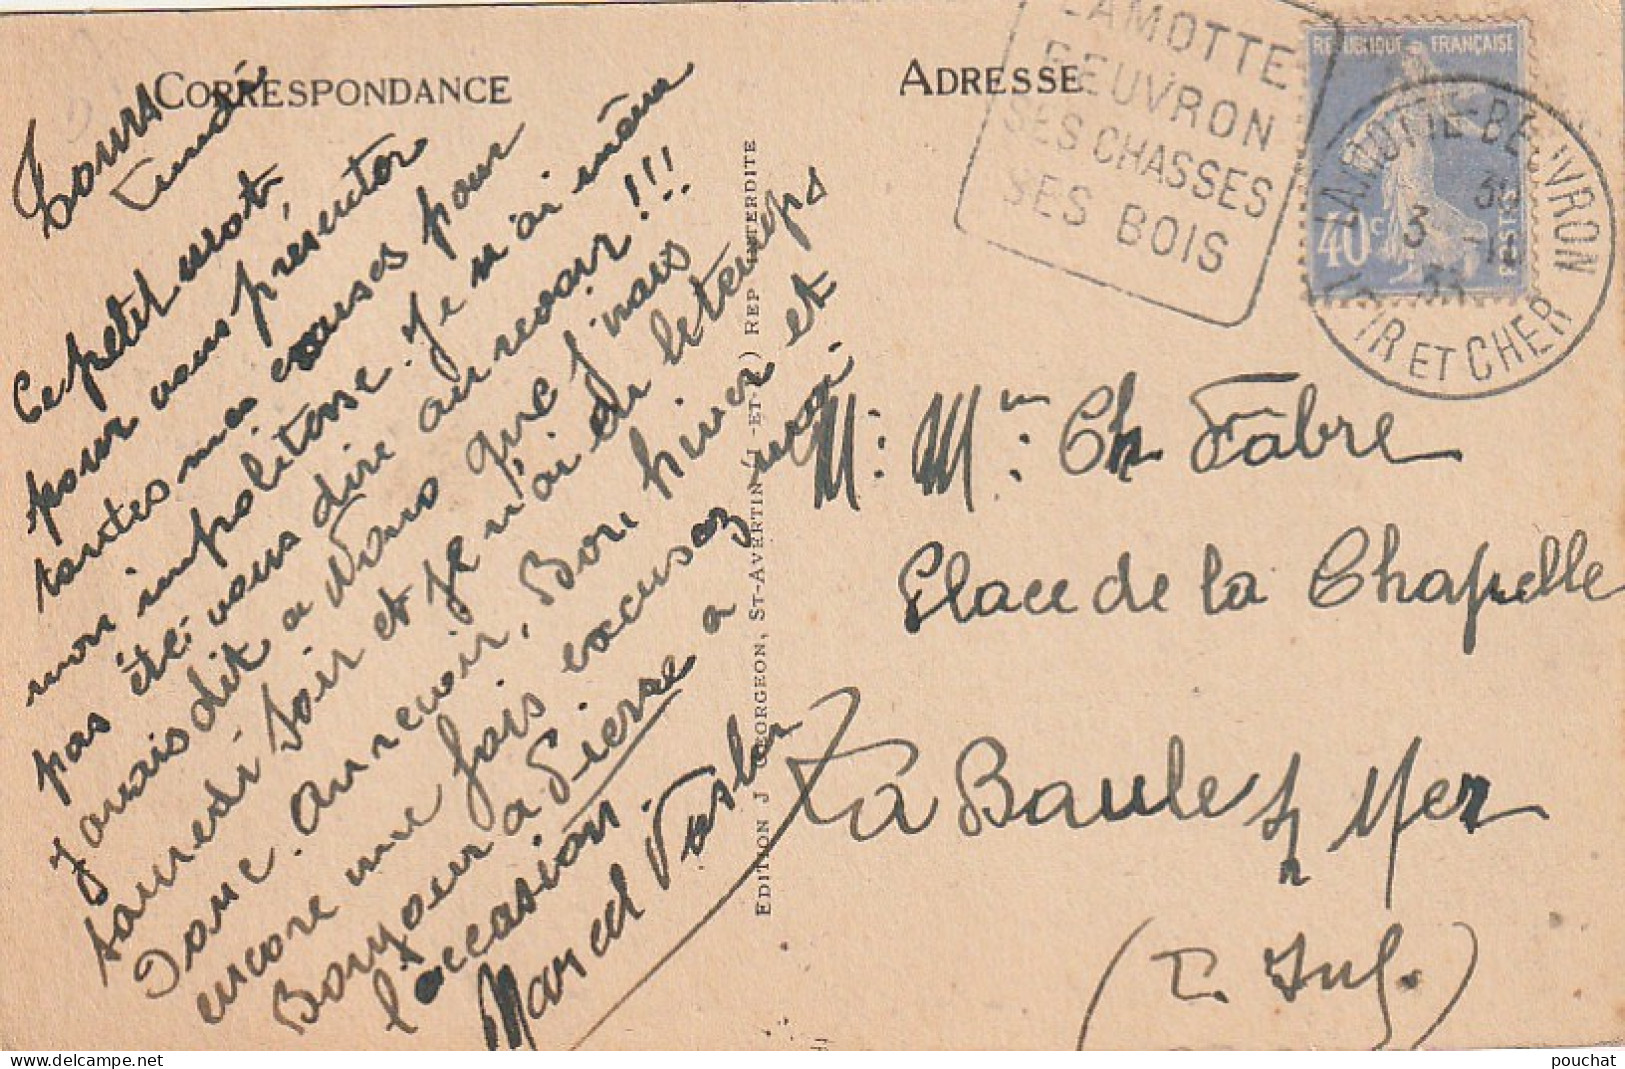 CORRESPONDANCE
Tours
Vendredi
Ce petit mot,
pour vous presenter
toutes mes excuses pour
mon impolitesse. Je n'ai même
pas été vous dire au revoir!!!
J'avais dit a Nano que j'irais
samedi soir et je n'ai du le temps
Donc. au revoir, Bon hiver et
encore une fois excusez moi
Bonjour a Pierre a
l'occasion.
Marcel
EDITION J GEORGEON, ST-AVERTIN (I.-ET-L.) REP INTERDITE
ADRESSE
LAMOTTE
BEUVRON
SES CHASSES
SES BOIS
REPUBLIQUE FRANÇAISE
40c
POSTES
LAMOTTE-BEUVRON
30
3 -11
LOIR ET CHER
M. Mme Ch Fabre
Place de la Chapelle
La Baule s/ Mer
(L. Inf.)
pouchat